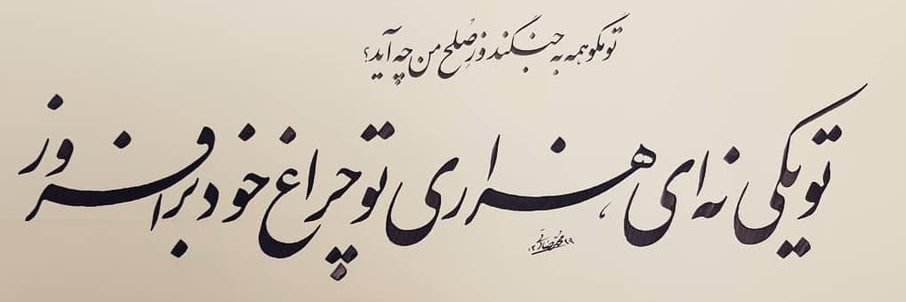 تو مگو همه به جنگند وز صلح من چه آید؟
تو یکی نه‌ای، هزاری تو چراغ خود برافروز